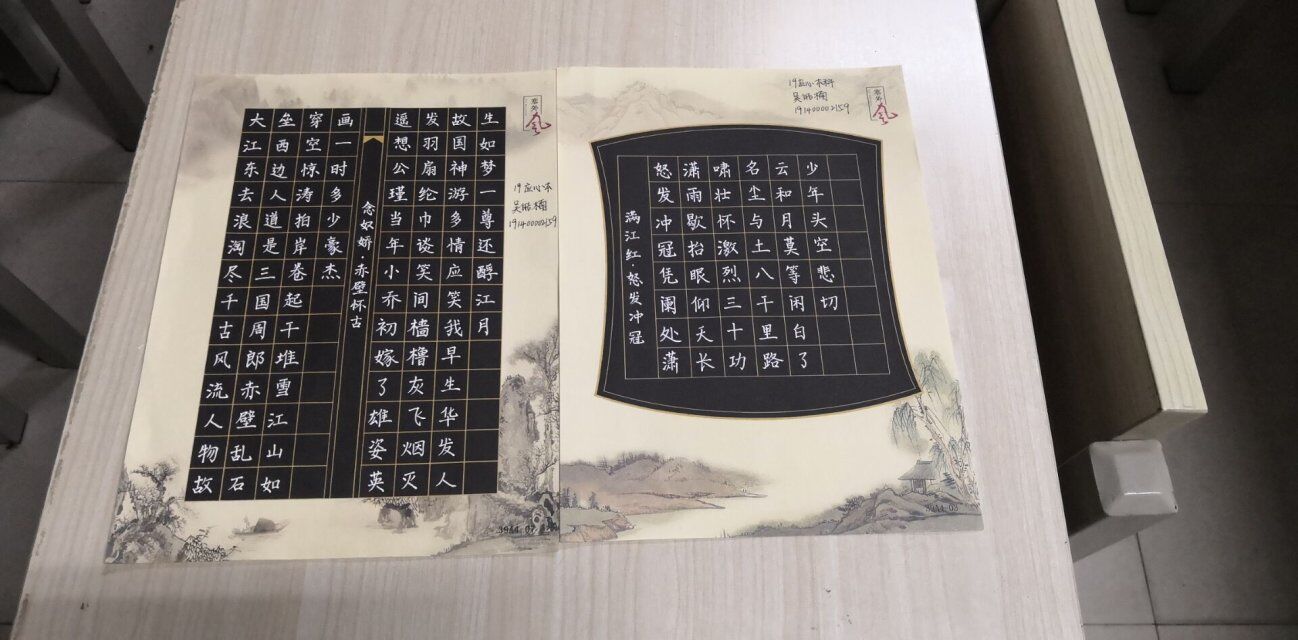 大江东去浪淘尽千古风流人物故
垒西边人道是三国周郎赤壁乱石
穿空惊涛拍岸卷起千堆雪江山如
画一时多少豪杰
念奴娇·赤壁怀古
遥想公瑾当年小乔初嫁了雄姿英
发羽扇纶巾谈笑间樯橹灰飞烟灭
故国神游多情应笑我早生华发人
生如梦一尊还酹江月
19应心本
191400002159
满江红·怒发冲冠
怒发冲冠凭阑处潇
潇雨歇抬眼仰天长
啸壮怀激烈三十功
名尘与土八千里路
云和月莫等闲白了
少年头空悲切
19应心本科
191400002159